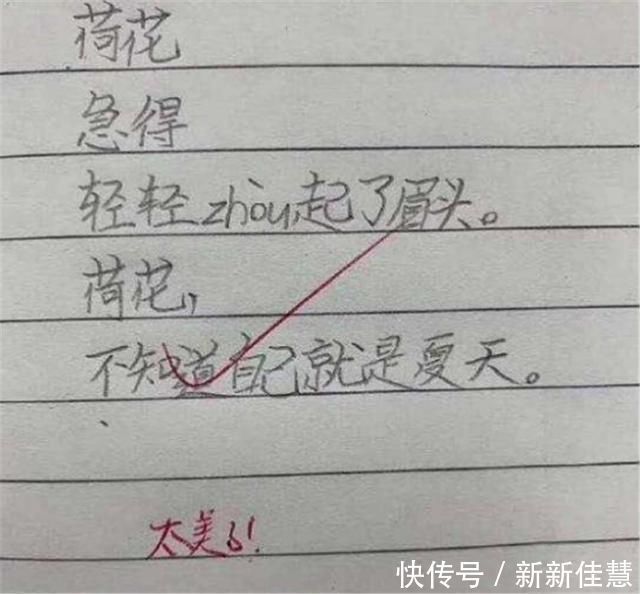 荷花
急得
轻轻zhòu起了眉头。
荷花，
不知道自己就是夏天。
太美了!
快传号/新新佳慧